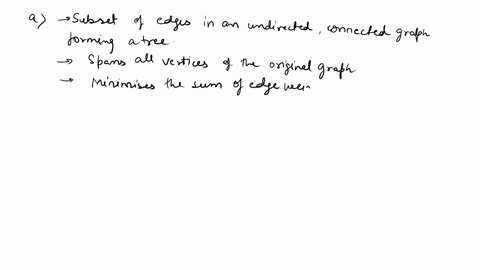 a) → Subset of edges in an undirected, connected graph
forming a tree.
→ Spans all vertices of the original graph
→ Minimises the sum of edge wei